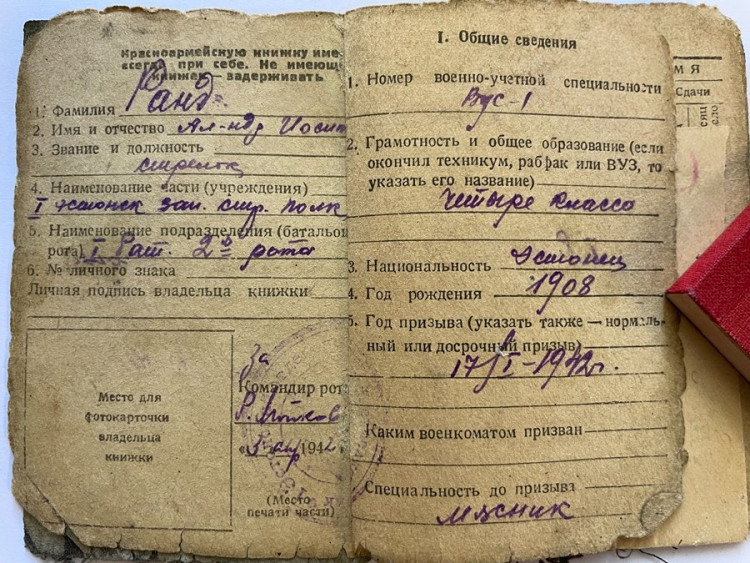 Красноармейскую книжку име
всегда при себе. Не имеющ
книжек — задерживать
1. Фамилия Ранд
2. Имя и отчество Ал-ндр Иосип
3. Звание и должность
стрелок
4. Наименование части (учреждения)
I эстонск зап. стр. полк
5. Наименование подразделения (батальон
рота) I бат. 2й рота
6. № личного знака
Личная подпись владельца книжки
Место для
фотокарточки
владельца
книжки
За
Командир рот
1942
(Место
печати части)
I. Общие сведения
1. Номер военно-учетной специальности
Вус-1
2. Грамотность и общее образование (если
окончил техникум, рабфак или ВУЗ, то
указать его название)
Четыре класса
3. Национальность Эстонец
4. Год рождения 1908
5. Год призыва (указать также — нормаль-
ный или досрочный призыв)
17/I-1942г.
Каким военкоматом призван
Специальность до призыва
мясник
МЯ
Сдачи